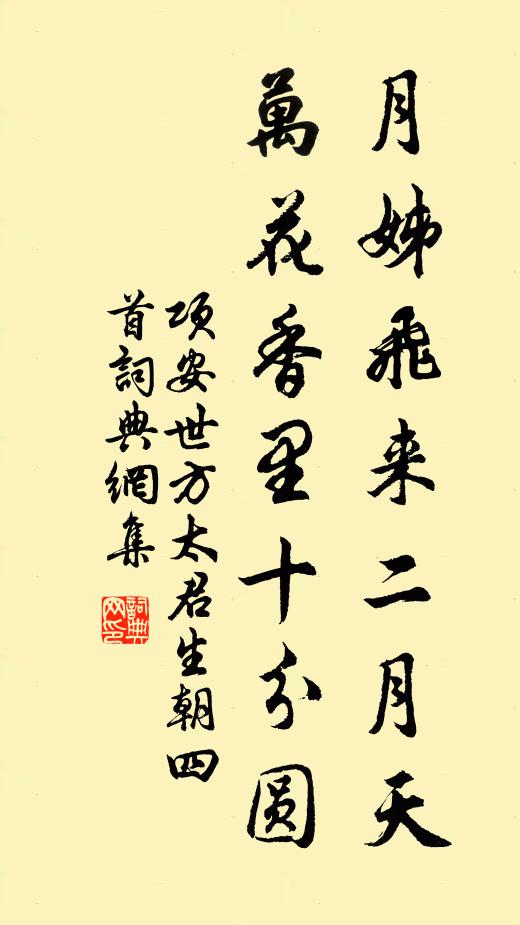 月姊飛来二月天
萬花香里十分圆
項安世方太君生朝四
首詞典網集
詞典
网印